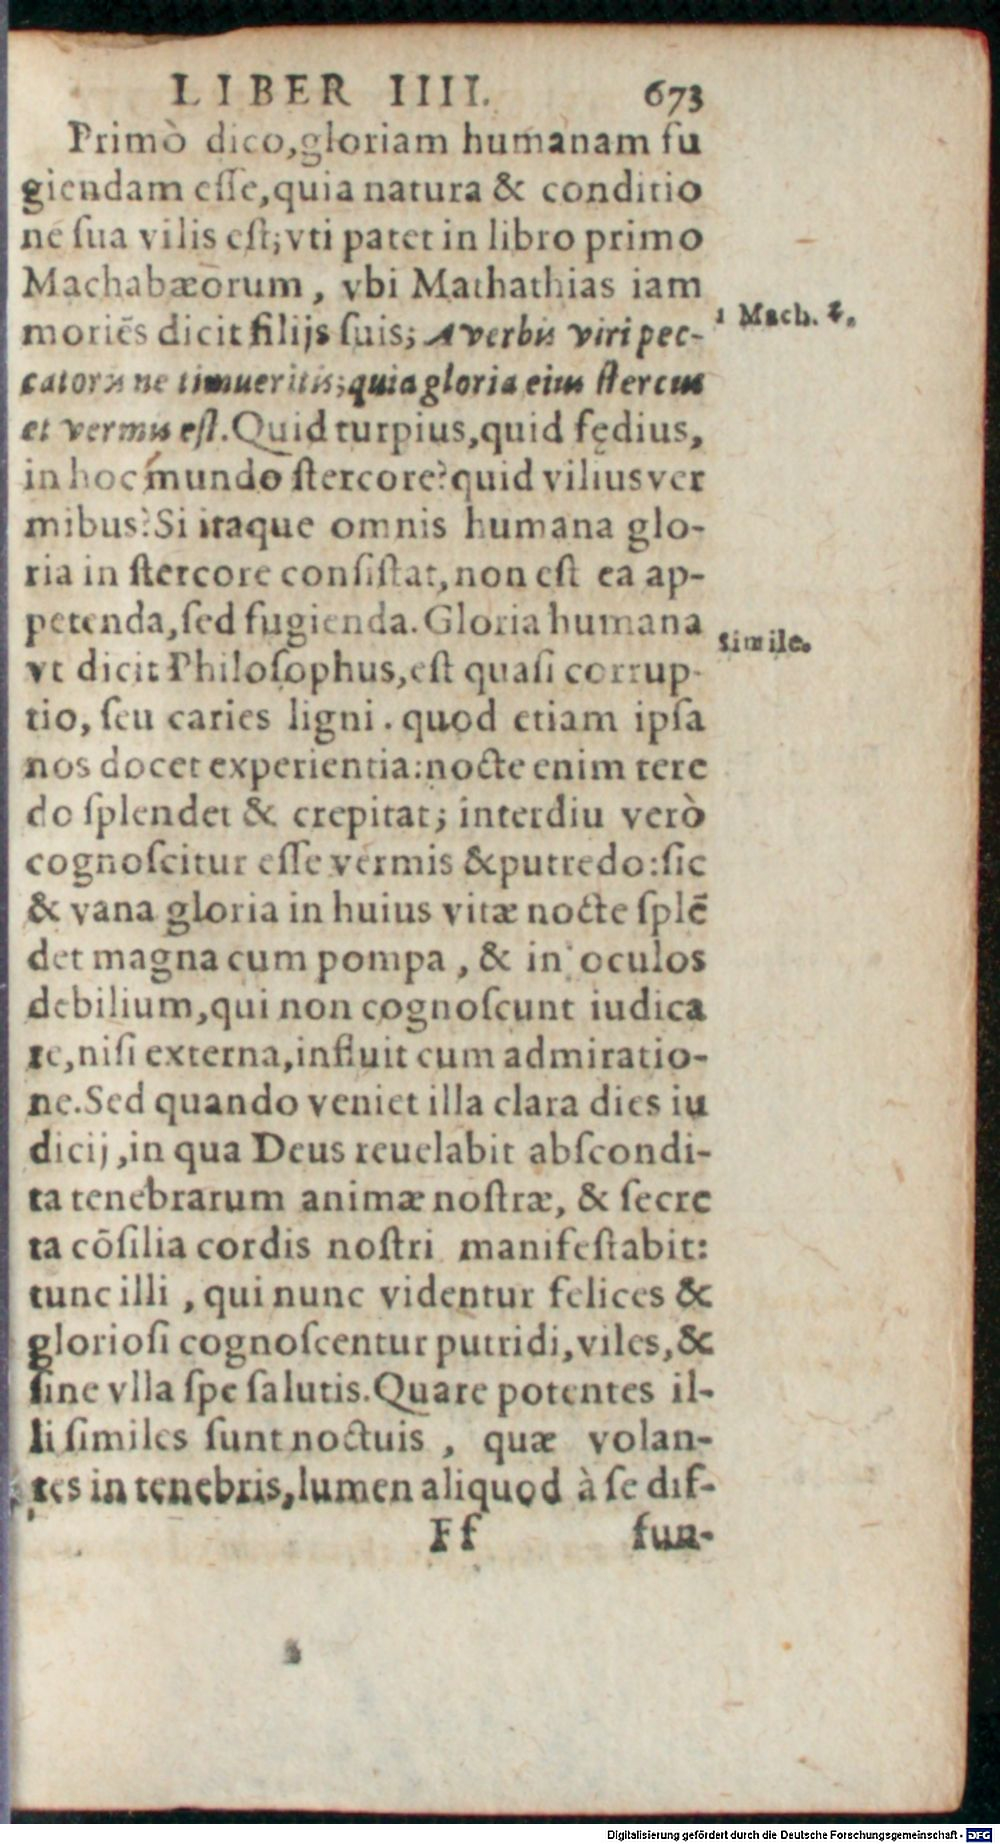 LIBER IIII. 673
Primò dico, gloriam humanam fu
giendam esse, quia natura & conditio
ne sua vilis est; vti patet in libro primo
Machabæorum, vbi Mathathias iam
moriēs dicit filijs suis; A verbis viri pec-
catoris ne timueritis; quia gloria eius stercus
et vermis est. Quid turpius, quid fędius,
in hoc mundo stercore? quid vilius ver
mibus? Si itaque omnis humana glo-
ria in stercore consistat, non est ea ap-
petenda, sed fugienda. Gloria humana
vt dicit Philosophus, est quasi corrup-
tio, seu caries ligni. quod etiam ipsa
nos docet experientia: nocte enim tere
do splendet & crepitat; interdiu verò
cognoscitur esse vermis & putredo: sic
& vana gloria in huius vitæ nocte splē
det magna cum pompa, & in oculos
debilium, qui non cognoscunt iudica
re, nisi externa, influit cum admiratio-
ne. Sed quando veniet illa clara dies iu
dicij, in qua Deus reuelabit abscondi-
ta tenebrarum animæ nostræ, & secre
ta cōsilia cordis nostri manifestabit:
tunc illi, qui nunc videntur felices &
gloriosi cognoscentur putridi, viles, &
sine vlla spe salutis. Quare potentes il-
li similes sunt noctuis, quæ volan-
tes in tenebris, lumen aliquod à se dif-
Ff fun-
1 Mach. 2.
Simile.
Digitalisierung gefördert durch die Deutsche Forschungsgemeinschaft - DFG